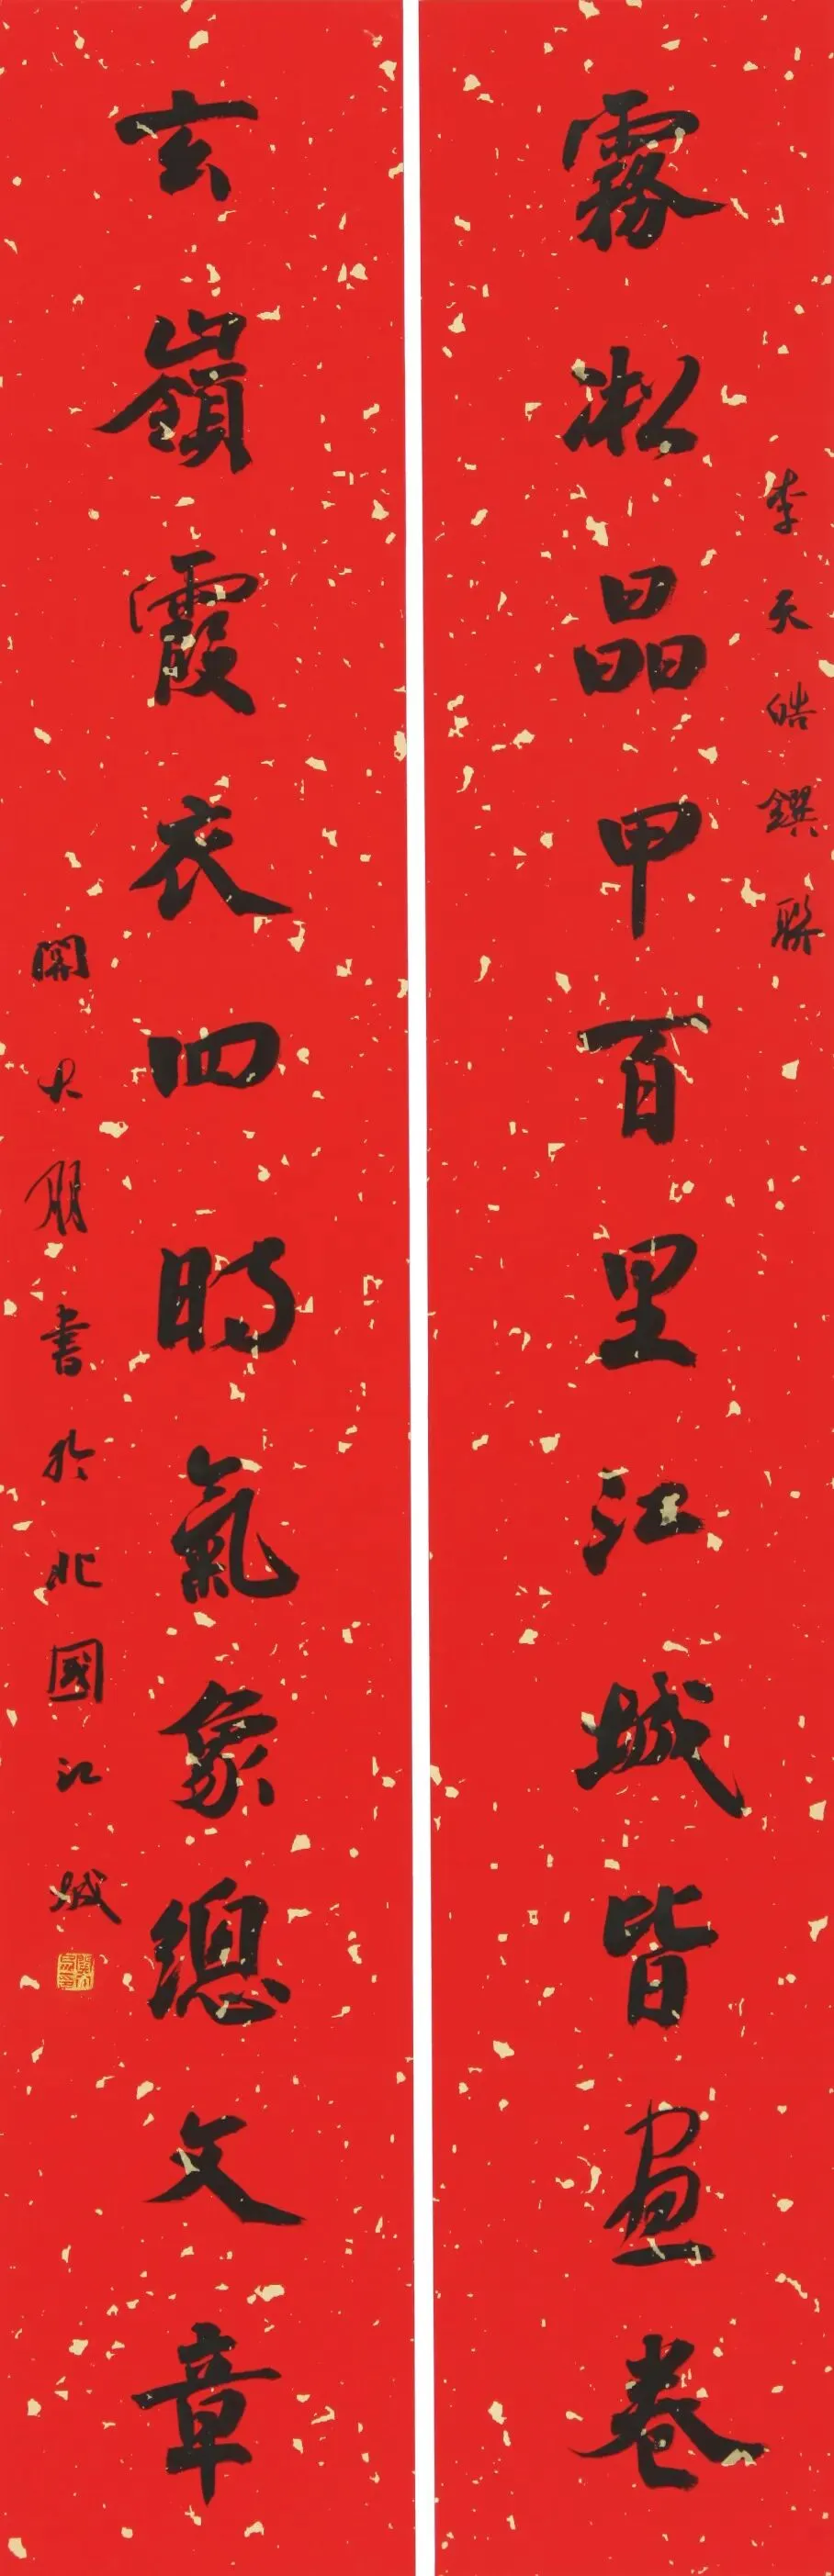 李天皓撰聯
霧凇晶甲百里江城皆畫卷
玄嶺霞衣四時氣象總文章
關大朋書於北國江城